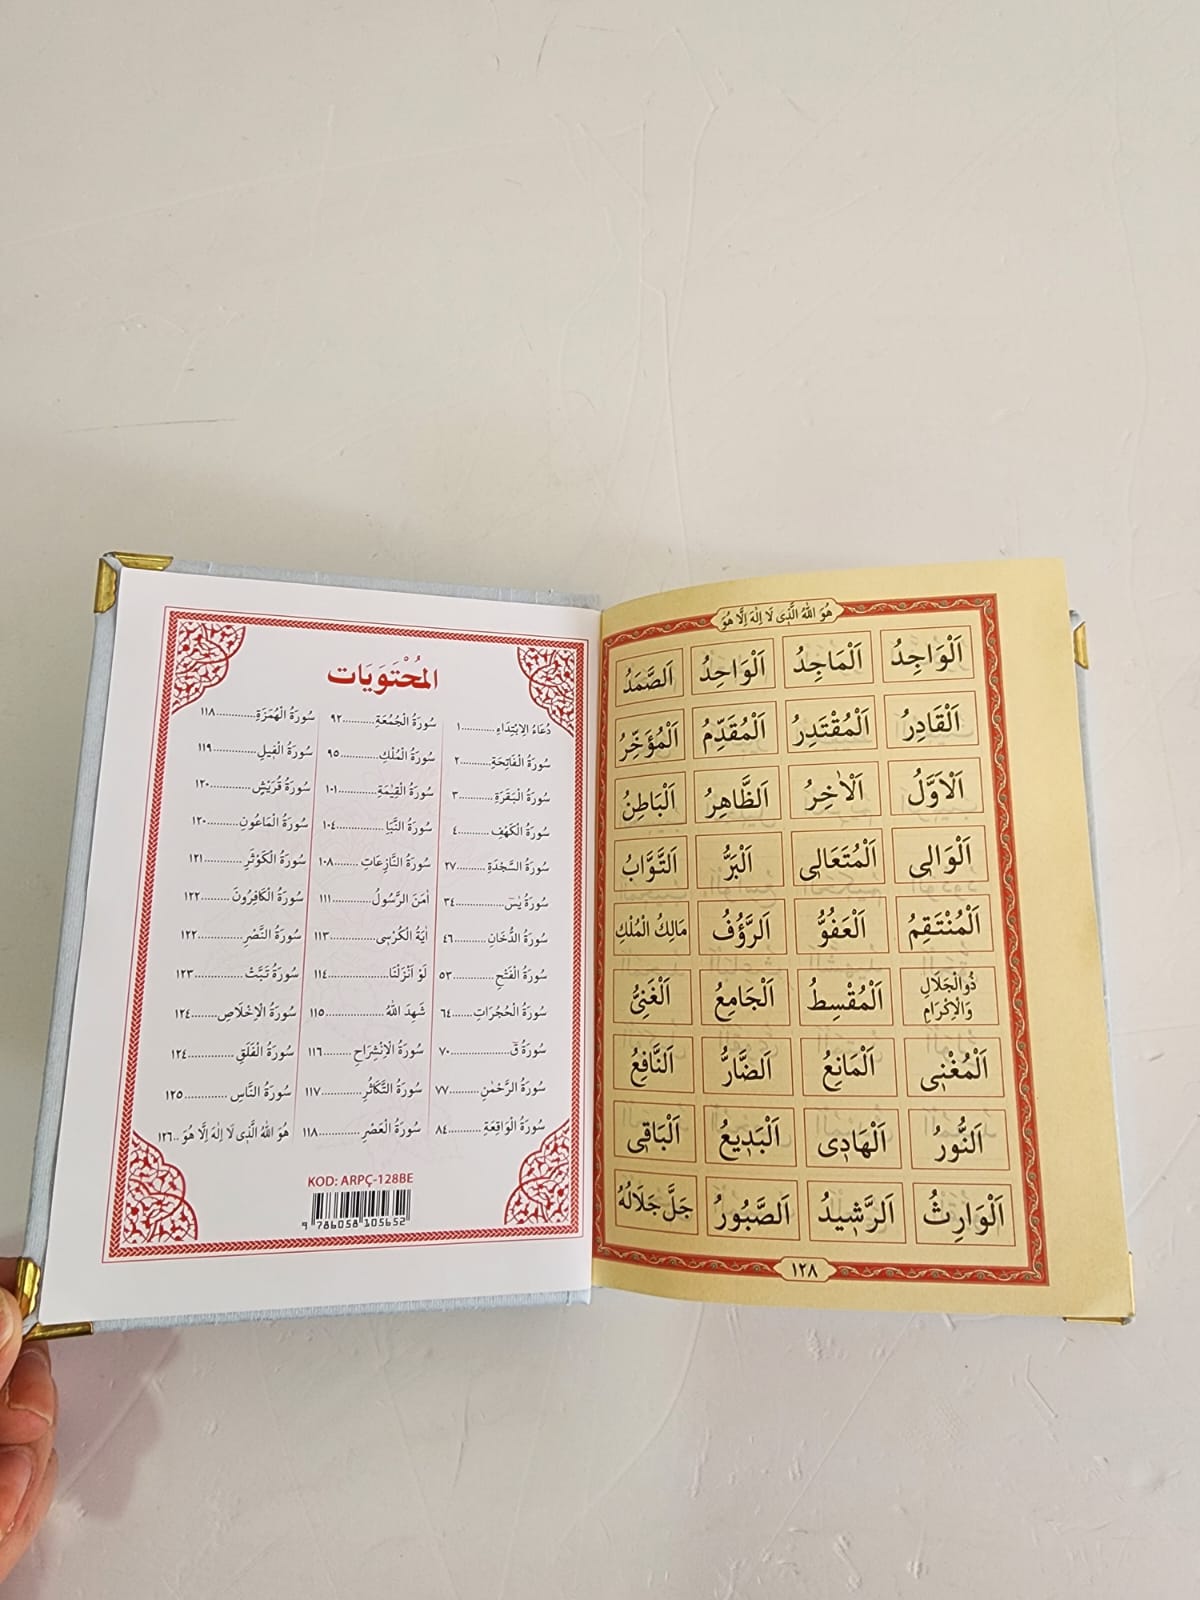 هُوَ اللّٰهُ الَّذ۪ى لَا اِلٰهَ اِلَّا هُوَ
اَلْوَاجِدُ اَلْمَاجِدُ اَلْوَاحِدُ اَلصَّمَدُ
اَلْقَادِرُ اَلْمُقْتَدِرُ اَلْمُقَدِّمُ اَلْمُؤَخِّرُ
اَلْاَوَّلُ اَلْاٰخِرُ اَلظَّاهِرُ اَلْبَاطِنُ
اَلْوَال۪ى اَلْمُتَعَال۪ى اَلْبَرُّ اَلتَّوَّابُ
اَلْمُنْتَقِمُ اَلْعَفُوُّ اَلرَّؤُفُ مَالِكُ الْمُلْكِ
ذُوالْجَلَالِ وَالْاِكْرَامِ اَلْمُقْسِطُ اَلْجَامِعُ اَلْغَنِىُّ
اَلْمُغْن۪ى اَلْمَانِعُ اَلضَّارُّ اَلنَّافِعُ
اَلنُّورُ اَلْهَاد۪ى اَلْبَد۪يعُ اَلْبَاق۪ى
اَلْوَارِثُ اَلرَّش۪يدُ اَلصَّبُورُ جَلَّ جَلَالُهُ
١٢٨
المُحْتَوَيَات
دُعَاءُ الِابْتِدَاءِ..........١
سُورَةُ الْفَاتِحَةِ..........٢
سُورَةُ الْبَقَرَةِ..........٣
سُورَةُ الْكَهْفِ..........٤
سُورَةُ السَّجْدَةِ..........٢٧
سُورَةُ يٰسٓ..........٣٤
سُورَةُ الدُّخَانِ..........٤٦
سُورَةُ الْفَتْحِ..........٥٣
سُورَةُ الْحُجُرَاتِ..........٦٤
سُورَةُ قٓ..........٧٠
سُورَةُ الرَّحْمٰنِ..........٧٧
سُورَةُ الْوَاقِعَةِ..........٨٤
سُورَةُ الْجُمُعَةِ..........٩٢
سُورَةُ الْمُلْكِ..........٩٥
سُورَةُ الْقِيٰمَةِ..........١٠١
سُورَةُ النَّبَاِ..........١٠٤
سُورَةُ النَّازِعَاتِ..........١٠٨
اٰمَنَ الرَّسُولُ..........١١١
اٰيَةُ الْكُرْسِى..........١١٣
لَوْ اَنْزَلْنَا..........١١٤
شَهِدَ اللّٰهُ..........١١٥
سُورَةُ الْاِنْشِرَاحِ..........١١٦
سُورَةُ التَّكَاثُرِ..........١١٧
سُورَةُ الْعَصْرِ..........١١٨
سُورَةُ الْهُمَزَةِ..........١١٨
سُورَةُ الْف۪يلِ..........١١٩
سُورَةُ قُرَيْشٍ..........١٢٠
سُورَةُ الْمَاعُونِ..........١٢٠
سُورَةُ الْكَوْثَرِ..........١٢١
سُورَةُ الْكَافِرُونَ..........١٢٢
سُورَةُ النَّصْرِ..........١٢٢
سُورَةُ تَبَّتْ..........١٢٣
سُورَةُ الْاِخْلَاصِ..........١٢٤
سُورَةُ الْفَلَقِ..........١٢٤
سُورَةُ النَّاسِ..........١٢٥
هُوَ اللّٰهُ الَّذ۪ى لَا اِلٰهَ اِلَّا هُوَ..١٢٦
KOD: ARPÇ-128BE
9 786058 105652